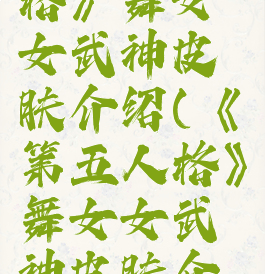 格》舞女
女武神皮
肤介绍(《
第五人格》
舞女女武
神皮肤介